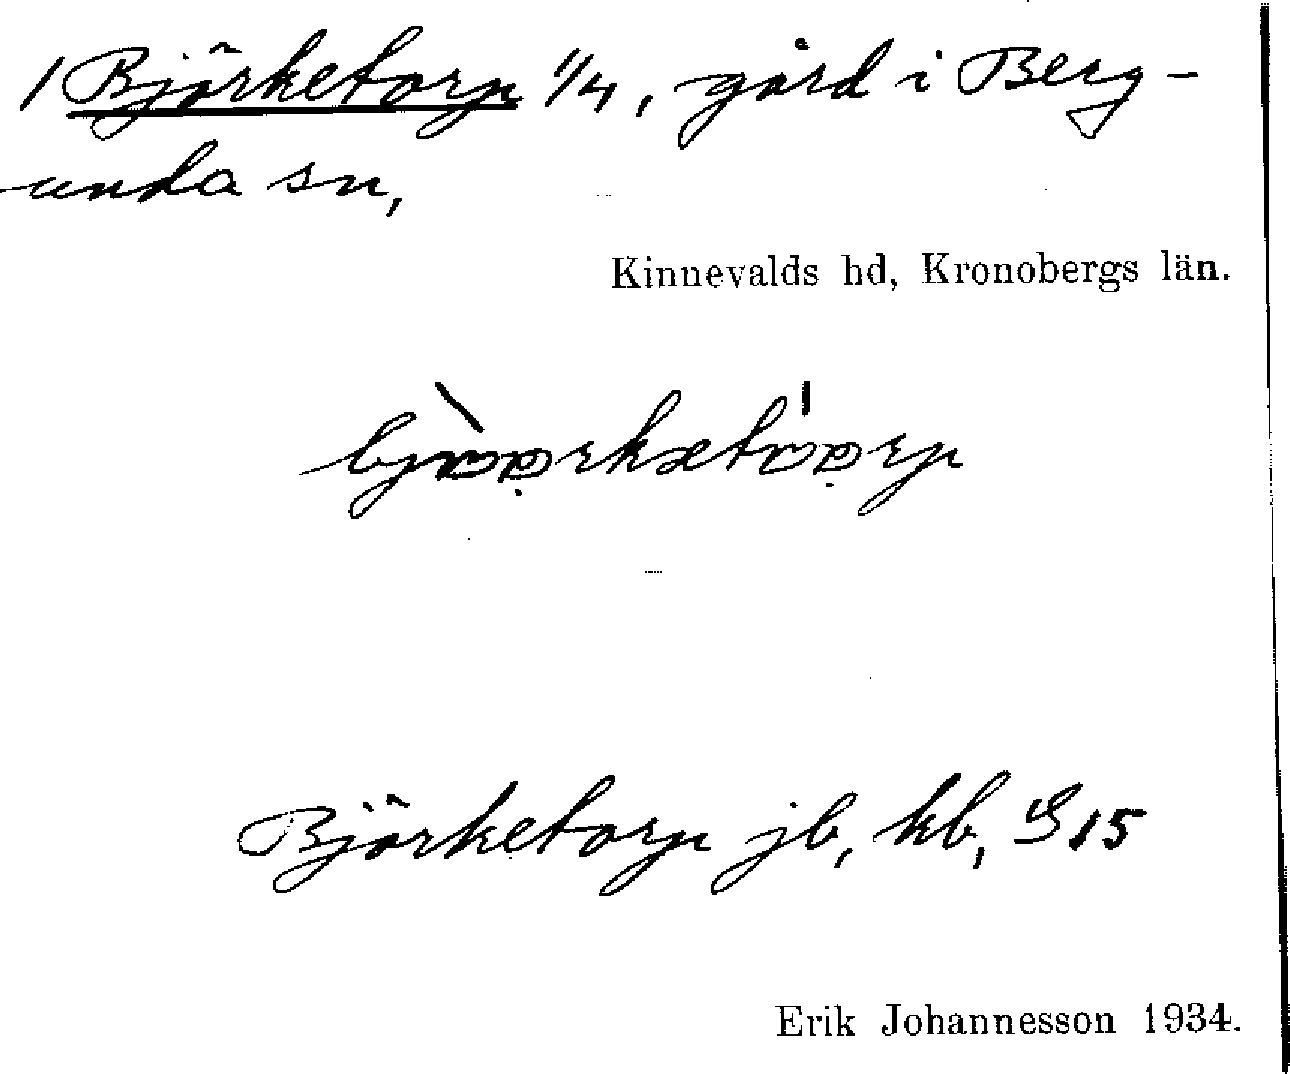 1 Björketorp 1/4, gård i Berg-
unda sn,
Kinnevalds hd, Kronobergs län.
Björketorp jb, kb, G 15
Erik Johannesson 1934.